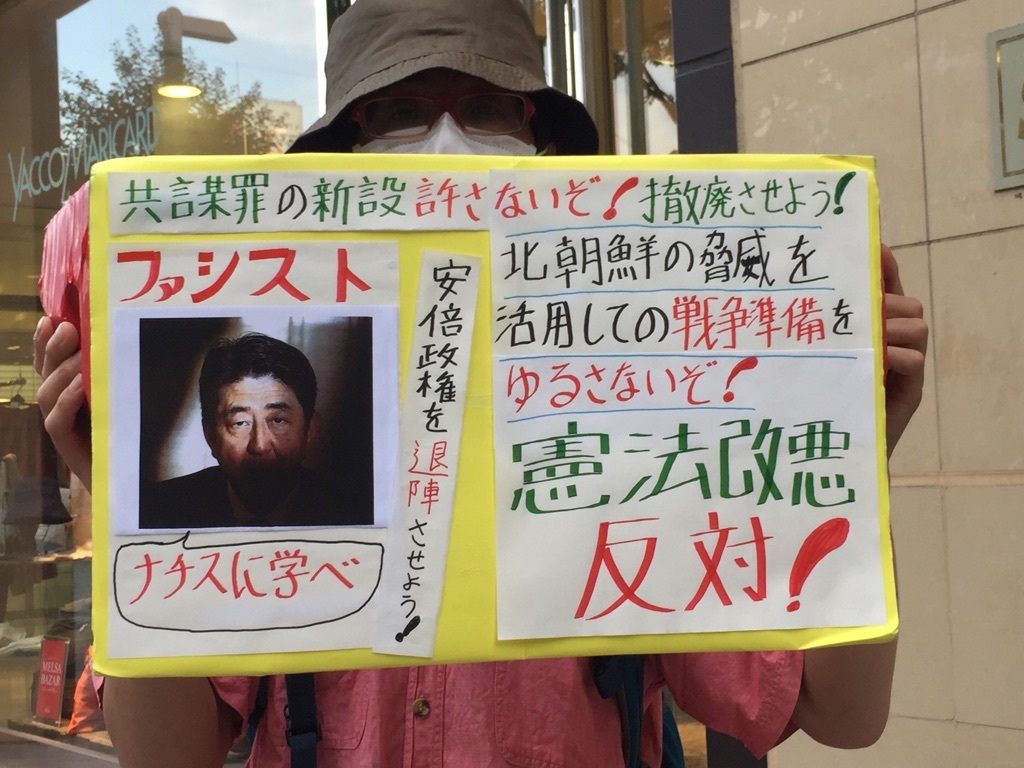 共謀罪の新設許さないぞ！撤廃させよう！
ファシスト
ナチスに学べ
安倍政権を退陣させよう！
北朝鮮の脅威を
活用しての戦争準備を
ゆるさないぞ！
憲法改悪
反対！
YACCOMARICARD
MELSA
BAZAR